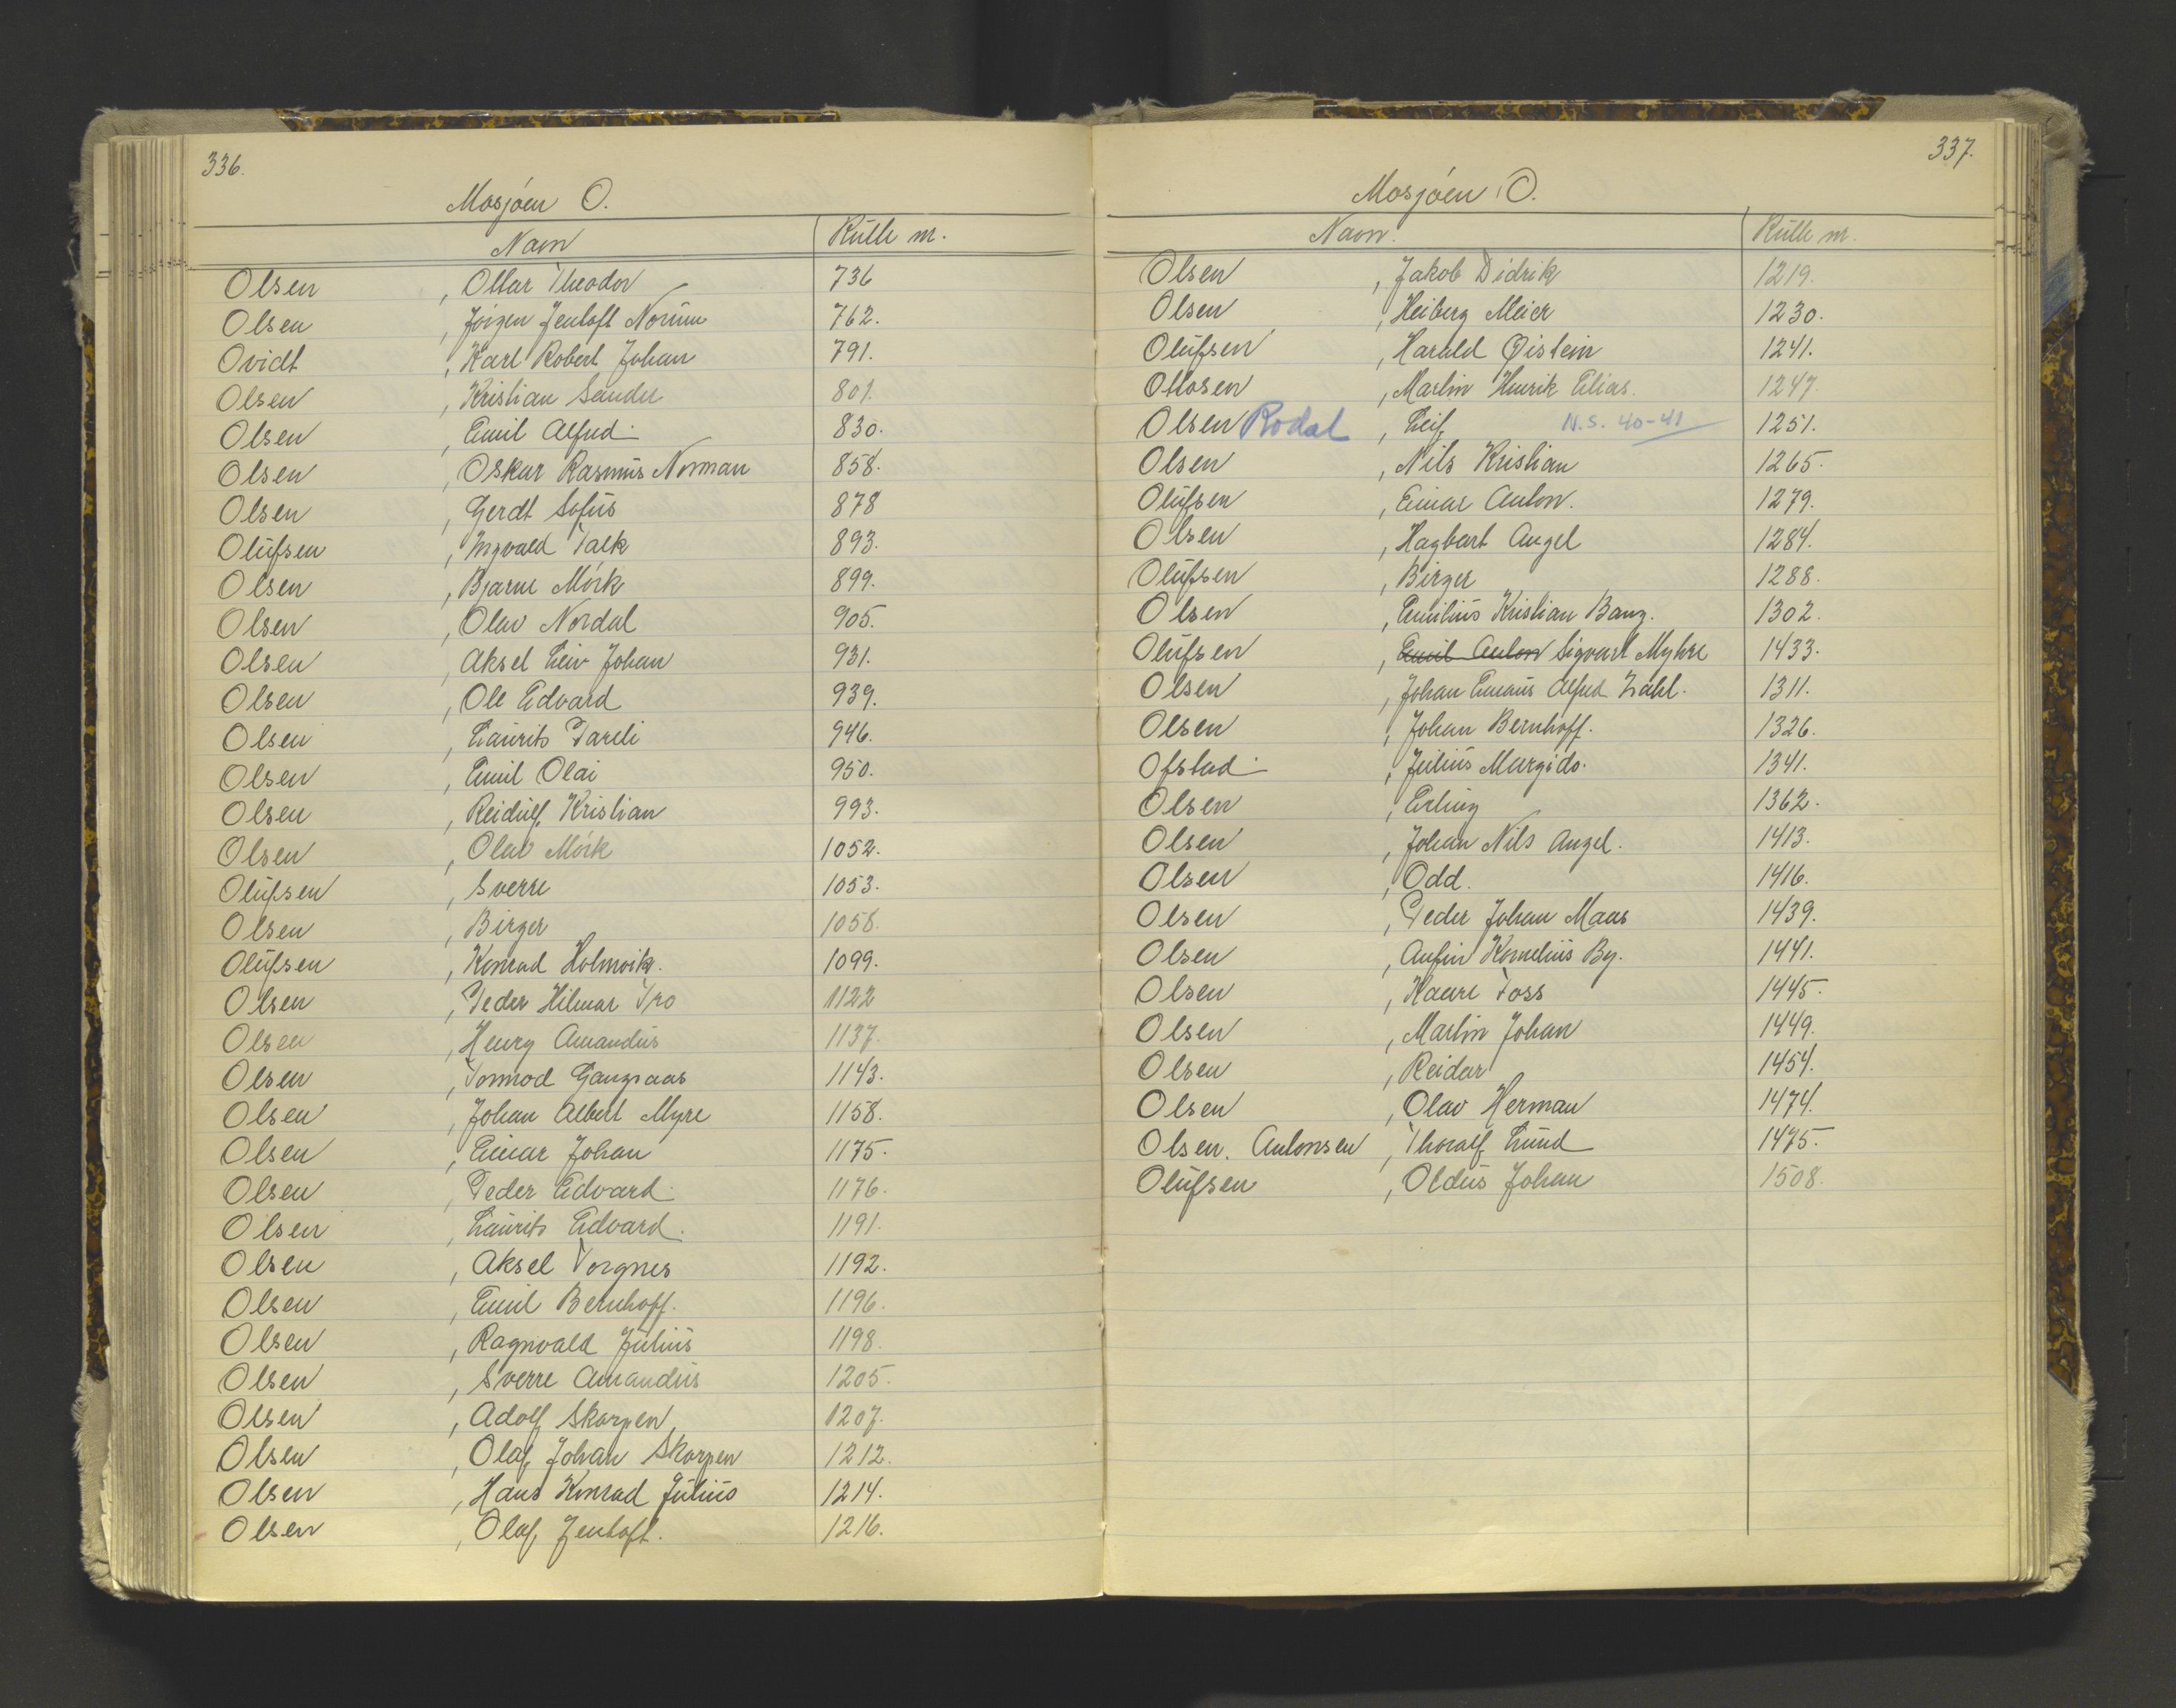 336.
Mosjöen O.
Navn Rulle nr.
Olsen , Ottar Theodor 736
Olsen , Jörgen Jentoft Norum 762.
Ovidt , Karl Robert Johan 791.
Olsen , Kristian Sander 801.
Olsen , Emil Alfred 830.
Olsen , Oskar Rasmus Norman 858.
Olsen , Gerdt Sofus 878
Olufsen , Ingvald Falk 893.
Olsen , Bjarne Mörk 899.
Olsen , Olav Nordal 905.
Olsen , Aksel Leiv Johan 931.
Olsen , Ole Edvard 939.
Olsen , Laurits Pareli 946.
Olsen , Emil Olai 950.
Olsen , Reidulf Kristian 993.
Olsen , Olav Mörk 1052.
Olufsen , Sverre 1053.
Olsen , Birger 1058.
Olufsen , Konrad Holmvik. 1099.
Olsen , Peder Hilmar Tro 1122
Olsen , Henry Amandus 1137.
Olsen , Tormod Gangsaas 1143.
Olsen , Johan Albert Myre 1158.
Olsen , Einar Johan 1175.
Olsen , Peder Edvard 1176.
Olsen , Laurits Edvard. 1191.
Olsen , Aksel Torgnes 1192.
Olsen , Emil Bernhoff. 1196.
Olsen , Ragnvald Julius 1198.
Olsen , Sverre Amandus 1205.
Olsen , Adolf Skarpen 1207.
Olsen , Olaf Johan Skarpen 1212.
Olsen , Hans Konrad Julius 1214.
Olsen , Olaf Jentoft. 1216.
337.
Mosjöen O.
Navn. Rulle nr.
Olsen , Jakob Didrik 1219.
Olsen , Heiberg Meier 1230.
Olufsen , Harald Øistein 1241.
Ottosen , Martin Henrik Elias. 1247.
Olsen Rodal , Leif N.S. 40-41 1251.
Olsen , Nils Kristian 1265.
Olufsen , Einar Anton. 1279.
Olsen , Hagbart Angel 1284.
Olufsen , Birger 1288.
Olsen , Emilius Kristian Bang. 1302.
Olufsen , Emil Anton Sigvart Myhre 1433.
Olsen , Johan Emaus Alfred Zahl. 1311.
Olsen , Johan Bernhoff. 1326.
Ofstad , Julius Margido. 1341.
Olsen , Erling 1362.
Olsen , Johan Nils Angel. 1413.
Olsen , Odd. 1416.
Olsen , Peder Johan Maas 1439.
Olsen , Anfin Kornelius By. 1441.
Olsen , Kaare Foss 1445.
Olsen , Martin Johan 1449.
Olsen , Reidar 1454.
Olsen , Olav Herman 1474.
Olsen. Antonsen , Thoralf Lund 1475.
Olufsen , Oldus Johan 1508.